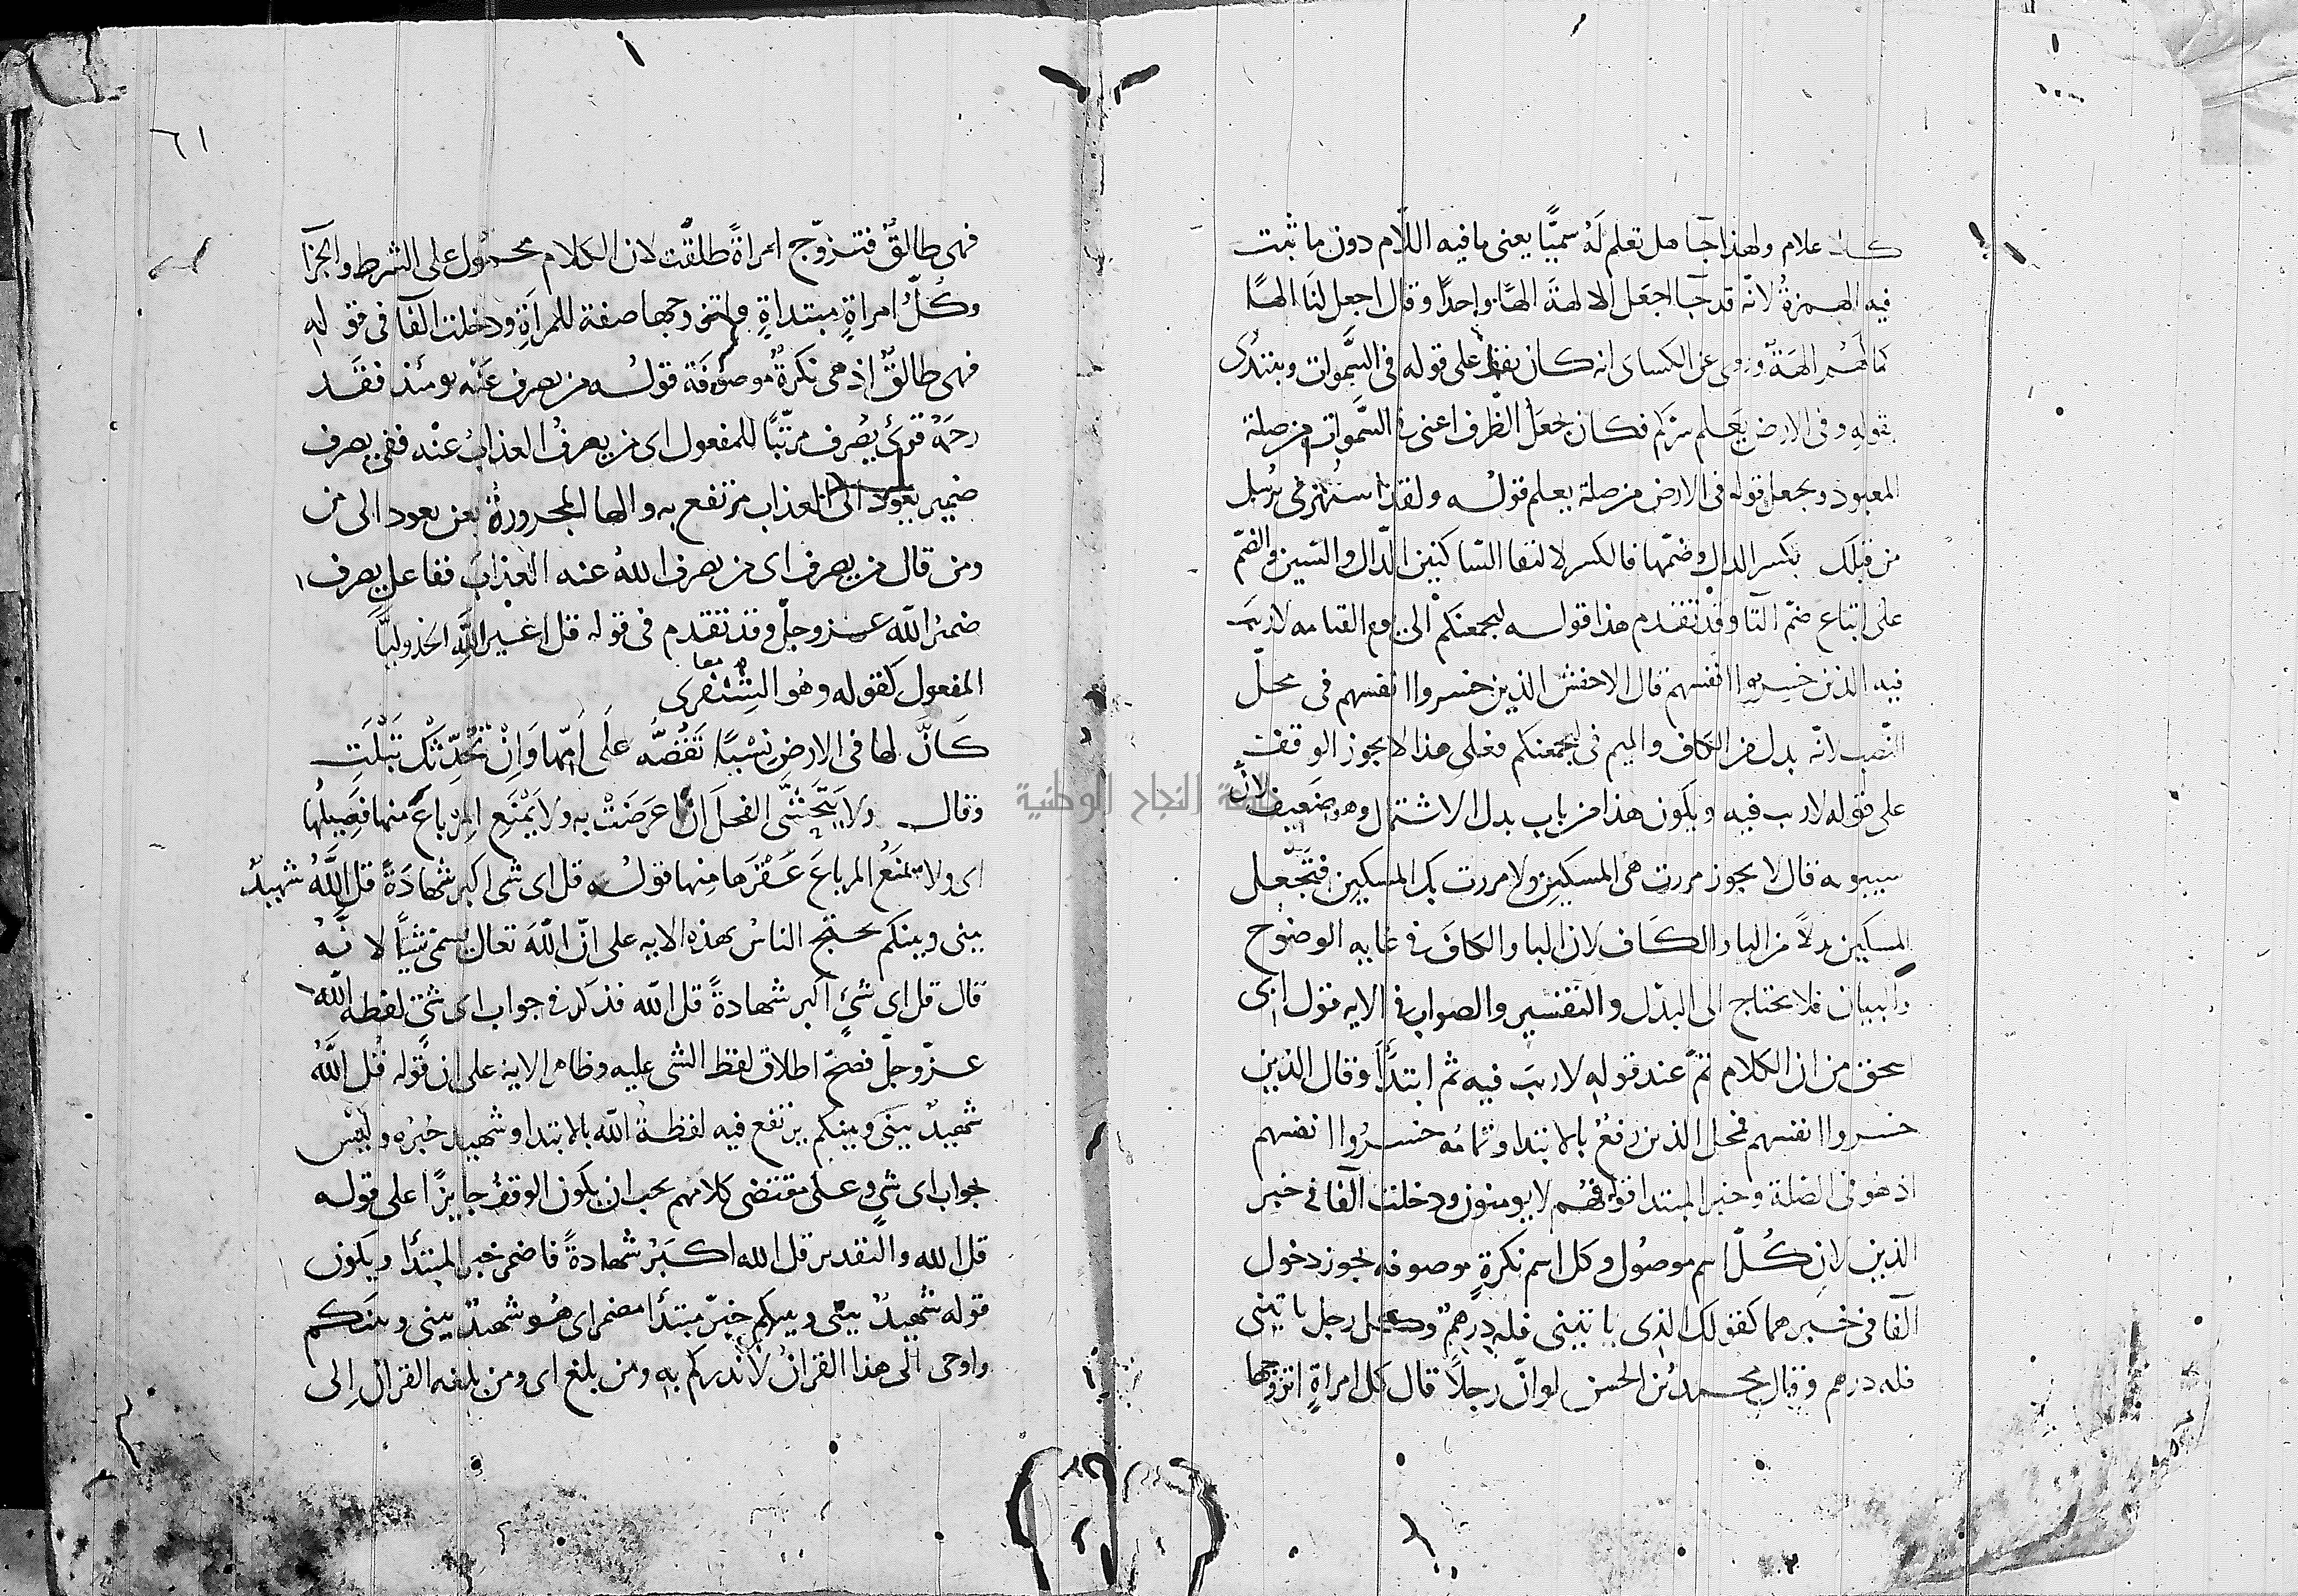 كالاعلام ولهذا جآ هل تعلم لَهُ سميًّا يعنى ما فيه اللّام دون ما ثبت
فيه الهمزةُ لانّه قد جآ اجعَل الالهةَ الهًا واحدًا وقال اجعل لنَا الهًا
كما لَهُم الهَةٌ وروى عن الكساى انه كان يقف على قوله فى السَّموات ويبتدى
بقوله وفى الارض يَعلم سركم فكان يجعَل الظّرف اعنى فى السَّموات من صلة
المعبود ويجعل قوله فى الارض من صلة يعلم قولُه ولقد استُهزى برُسل
من قبلك بكسر الدال وضمّها فالكسر لالتقا السّاكنين الدّال والسّين والضّم
على اتباع ضمّ التآ وقد تقدم هذا قوله ليجمعَنكم الى يوم القيامه لا ريب
فيه الذين خسِروا انفسهم قال الاخفش الذين خسروا انفسهم فى محلّ
النّصب لانّه بدل من الكاف والميم فى ليجمعنكم فعلى هذا لا يجوز الوقف
على قوله لا ريب فيه ويكون هذا من باب بدل الاشتمال وهو ضعيف لانّ
سيبويه قال لا يجوز مررت بى المسكينِ ولا مررت بك المسكين فتَجّعل
المسكين بدلاً من اليا والكَاف لان اليا والكافَ فى غايه الوضوح
والبيان فلا يحتاج الى البدَل والتفسير والصواب فى الايه قول ابى
اسحق من ان الكلام تمّ عند قوله لا ريبَ فيه ثم ابتدَأ وقال الذين
خسروا انفسهم فمحل الذين رفعٌ بالابتدا وتمامُه خسرُوا انفسهم
اذ هو فى الصّلة وخبر المبتدا قوله فهُم لا يومنون ودخلت الفآ فى خبر
الذين لان كُلّ اسم موصُول وكل اسم نكرةٍ موصوفه يجوز دخول
الفآ فى خبرهما كقولك الذى ياتينى فله دِرهمٌ وكل رجل ياتينى
فله درهم وقال محمدُ بن الحسن لو انّ رجلاً قال كل امراةٍ اتزوجها
٦١
فهى طالقٌ فتزوّج امراةً طلقت لان الكلام محمُول على الشرط والجزآ
وكُلّ امراةٍ مبتداةٍ واتزوجها صفة للمرأةِ ودخلت الفآ فى قوله
فهى طالقٌ اذ هى نكرةٌ موصُوفَة قولُه من يصرف عَنْه يومئذ فقَد
رحمَهُ قرىَ يُصرف مرتّبًا للمفعول اى من يصرفُ العذابُ عنْه ففى يصرف
ضمير يعُود الى العذاب مرتفع به والها المجرورةُ بعن يعود الى من
ومن قال من يصرف اى من يصرف اللهُ عنه العذابَ ففاعل يصرف
ضميرُ الله عزوجلّ وقد تقدم فى قوله قل اغير اللهِ اتخذ وليَّا
المفعول كقوله وهُو الشَّنْفَرى
معا
كَانَّ لها فى الارض نِسْيًا تَقُصُّه عَلَى اَمِّها وَاِنْ تُحَدِّثْكَ تَبْلَتِ
وقال ولا يَتَحَشَّى الفحلَ ان اعرَضَتْ به ولا يَمْنَعِ المِرْباعَ منها فَصِيلُها
اى ولا يمنَعُ المرباعَ عَقْرَها مِنها قولُه قل اى شى اكبر شهَادَةً قل اللَّهُ شهيدٌ
بينى وبينكم يحتج الناسُ بهذه الايه على انّ اللهَ تعالى يسمى شيأً لانّه
قال قل اى شئ اكبر شهادةً قل الله فذكر فى جواب اى شئ لفظه الله
عزّوجلّ فصحّ اطلاق لفظ الشى عليه وظاهر الاية على ان قوله قُل اللّهُ
شهيدٌ بينىَ وبينكم يرتفع فيه لفظةُ الله بالابتدا وشهيد خبرُه وليْس
بجواب اى شئٍ وعلى مقتضى كلامهم يجب ان يكون الوقفُ جايزًا على قوله
قل الله والتقدير قل الله اكبَرُ شهادةً فاضمر خبر المبتدأ ويكون
قوله شهيدٌ بينى وبينكم خبرَ مبتدأ مضمر اى هُو شهيدٌ بينى وبينَكم
واوحى الَى هذا القرانُ لاُنذركم بهِ ومن بلغ اى ومن بلغه القرآن اِلى
جامعة النجاح الوطنية